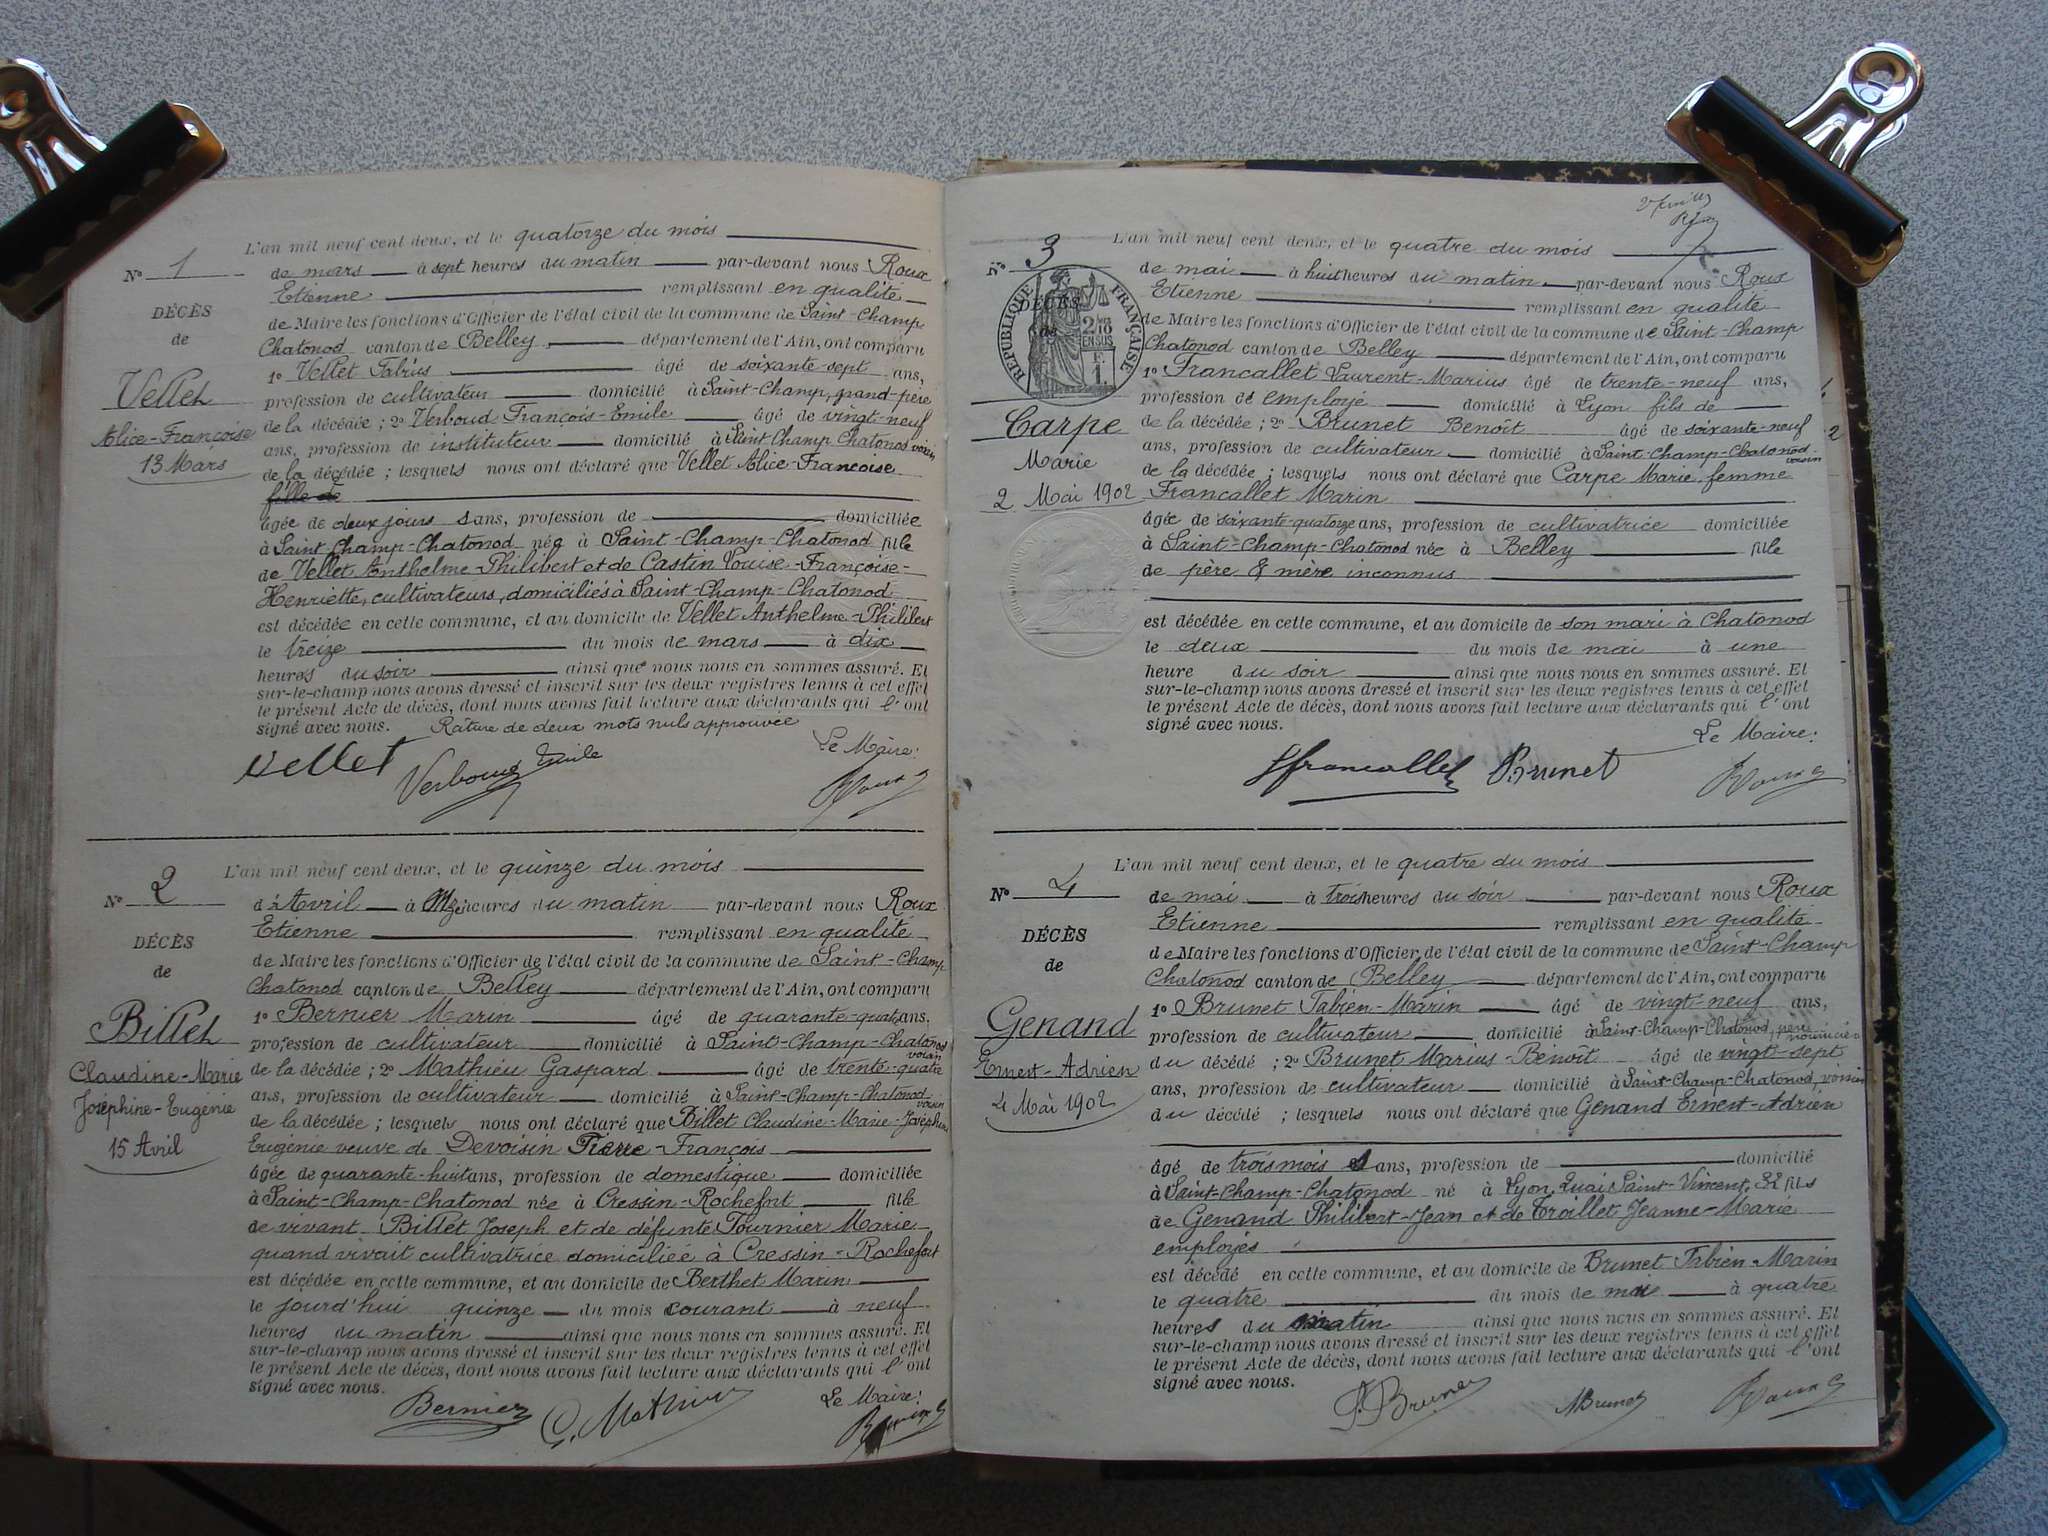 N° 1
DÉCÈS
de
Vellet
Alice-Françoise
13 Mars
L'an mil neuf cent deux, et le quatorze du mois
de mars à sept heures du matin par-devant nous Roux
Etienne remplissant en qualité
de Maire les fonctions d'Officier de l'état civil de la commune de Saint-Champ
Chatonod canton de Belley département de l'Ain, ont comparu
1° Vellet Fabius âgé de soixante-sept ans,
profession de cultivateur domicilié à Saint-Champ, grand-père
de la décédée ; 2° Verboud François-Emile âgé de vingt-neuf
ans, profession de instituteur domicilié à Saint Champ Chatonod voisin
de la décédée ; lesquels nous ont déclaré que Vellet Alice-Françoise
fille de
âgée de deux jours ans, profession de domiciliée
à Saint Champ-Chatonod née à Saint-Champ-Chatonod fille
de Vellet Anthelme-Philibert et de Castin Louise-Françoise-
Henriette, cultivateurs, domiciliés à Saint-Champ-Chatonod
est décédée en cette commune, et au domicile de Vellet Anthelme-Philibert
le treize du mois de mars à dix
heures du soir ainsi que nous nous en sommes assuré. Et
sur-le-champ nous avons dressé et inscrit sur les deux registres tenus à cet effet
le présent Acte de décès, dont nous avons fait lecture aux déclarants qui l'ont
signé avec nous. Rature de deux mots nuls approuvée
Le Maire:
Vellet Verboud Emile Roux
N° 2
DÉCÈS
de
Billet
Claudine-Marie
Joséphine-Eugénie
15 Avril
L'an mil neuf cent deux, et le quinze du mois
d'Avril à onze heures du matin par-devant nous Roux
Etienne remplissant en qualité
de Maire les fonctions d'Officier de l'état civil de la commune de Saint-Champ
Chatonod canton de Belley département de l'Ain, ont comparu
1° Bernier Marin âgé de quarante-quatre ans,
profession de cultivateur domicilié à Saint-Champ-Chatonod voisin
de la décédée ; 2° Mathieu Gaspard âgé de trente-quatre
ans, profession de cultivateur domicilié à Saint-Champ-Chatonod voisin
de la décédée ; lesquels nous ont déclaré que Billet Claudine-Marie-Joséphine
Eugénie veuve de Devoisin Pierre-François
âgée de quarante-huit ans, profession de domestique domiciliée
à Saint-Champ-Chatonod née à Cressin-Rochefort fille
de vivant Billet Joseph et de défunte Fournier Marie
quand vivait cultivatrice domiciliée à Cressin-Rochefort
est décédée en cette commune, et au domicile de Berthet Marin
le jourd'hui quinze du mois courant à neuf
heures du matin ainsi que nous nous en sommes assuré. Et
sur-le-champ nous avons dressé et inscrit sur les deux registres tenus à cet effet
le présent Acte de décès, dont nous avons fait lecture aux déclarants qui l'ont
signé avec nous.
Le Maire:
Bernier G. Mathieu Roux
N° 3
DÉCÈS
de
RÉPUBLIQUE FRANÇAISE
2/10 EN SUS
F. 1.
Carpe
Marie
2 Mai 1902
L'an mil neuf cent deux, et le quatre du mois
de mai à huit heures du matin par-devant nous Roux
Etienne remplissant en qualité
de Maire les fonctions d'Officier de l'état civil de la commune de Saint-Champ
Chatonod canton de Belley département de l'Ain, ont comparu
1° Francallet Laurent-Marius âgé de trente-neuf ans,
profession de employé domicilié à Lyon fils de
de la décédée ; 2° Brunet Benoît âgé de soixante-neuf
ans, profession de cultivateur domicilié à Saint-Champ-Chatonod voisin
de la décédée ; lesquels nous ont déclaré que Carpe Marie femme
Francallet Marin
âgée de soixante-quatorze ans, profession de cultivatrice domiciliée
à Saint-Champ-Chatonod née à Belley fille
de père & mère inconnus
est décédée en cette commune, et au domicile de son mari à Chatonod
le deux du mois de mai à une
heure du soir ainsi que nous nous en sommes assuré. Et
sur-le-champ nous avons dressé et inscrit sur les deux registres tenus à cet effet
le présent Acte de décès, dont nous avons fait lecture aux déclarants qui l'ont
signé avec nous.
Le Maire:
Francallet Brunet Roux
N° 4
DÉCÈS
de
Genand
Ernest-Adrien
4 Mai 1902
L'an mil neuf cent deux, et le quatre du mois
de mai à trois heures du soir par-devant nous Roux
Etienne remplissant en qualité
de Maire les fonctions d'Officier de l'état civil de la commune de Saint-Champ
Chatonod canton de Belley département de l'Ain, ont comparu
1° Brunet Fabien-Marin âgé de vingt-neuf ans,
profession de cultivateur domicilié à Saint-Champ-Chatonod, père nourricier
du décédé ; 2° Brunet Marius-Benoît âgé de vingt-sept
ans, profession de cultivateur domicilié à Saint-Champ-Chatonod, voisin
du décédé ; lesquels nous ont déclaré que Genand Ernest-Adrien
âgé de trois mois ans, profession de domicilié
à Saint-Champ-Chatonod né à Lyon, Quai Saint-Vincent, 32 fils
de Genand Philibert-Jean et de Troillet Jeanne-Marie
employés
est décédé en cette commune, et au domicile de Brunet Fabien-Marin
le quatre du mois de mai à quatre
heures du matin ainsi que nous nous en sommes assuré. Et
sur-le-champ nous avons dressé et inscrit sur les deux registres tenus à cet effet
le présent Acte de décès, dont nous avons fait lecture aux déclarants qui l'ont
signé avec nous.
F. Brunet M Brunet Roux